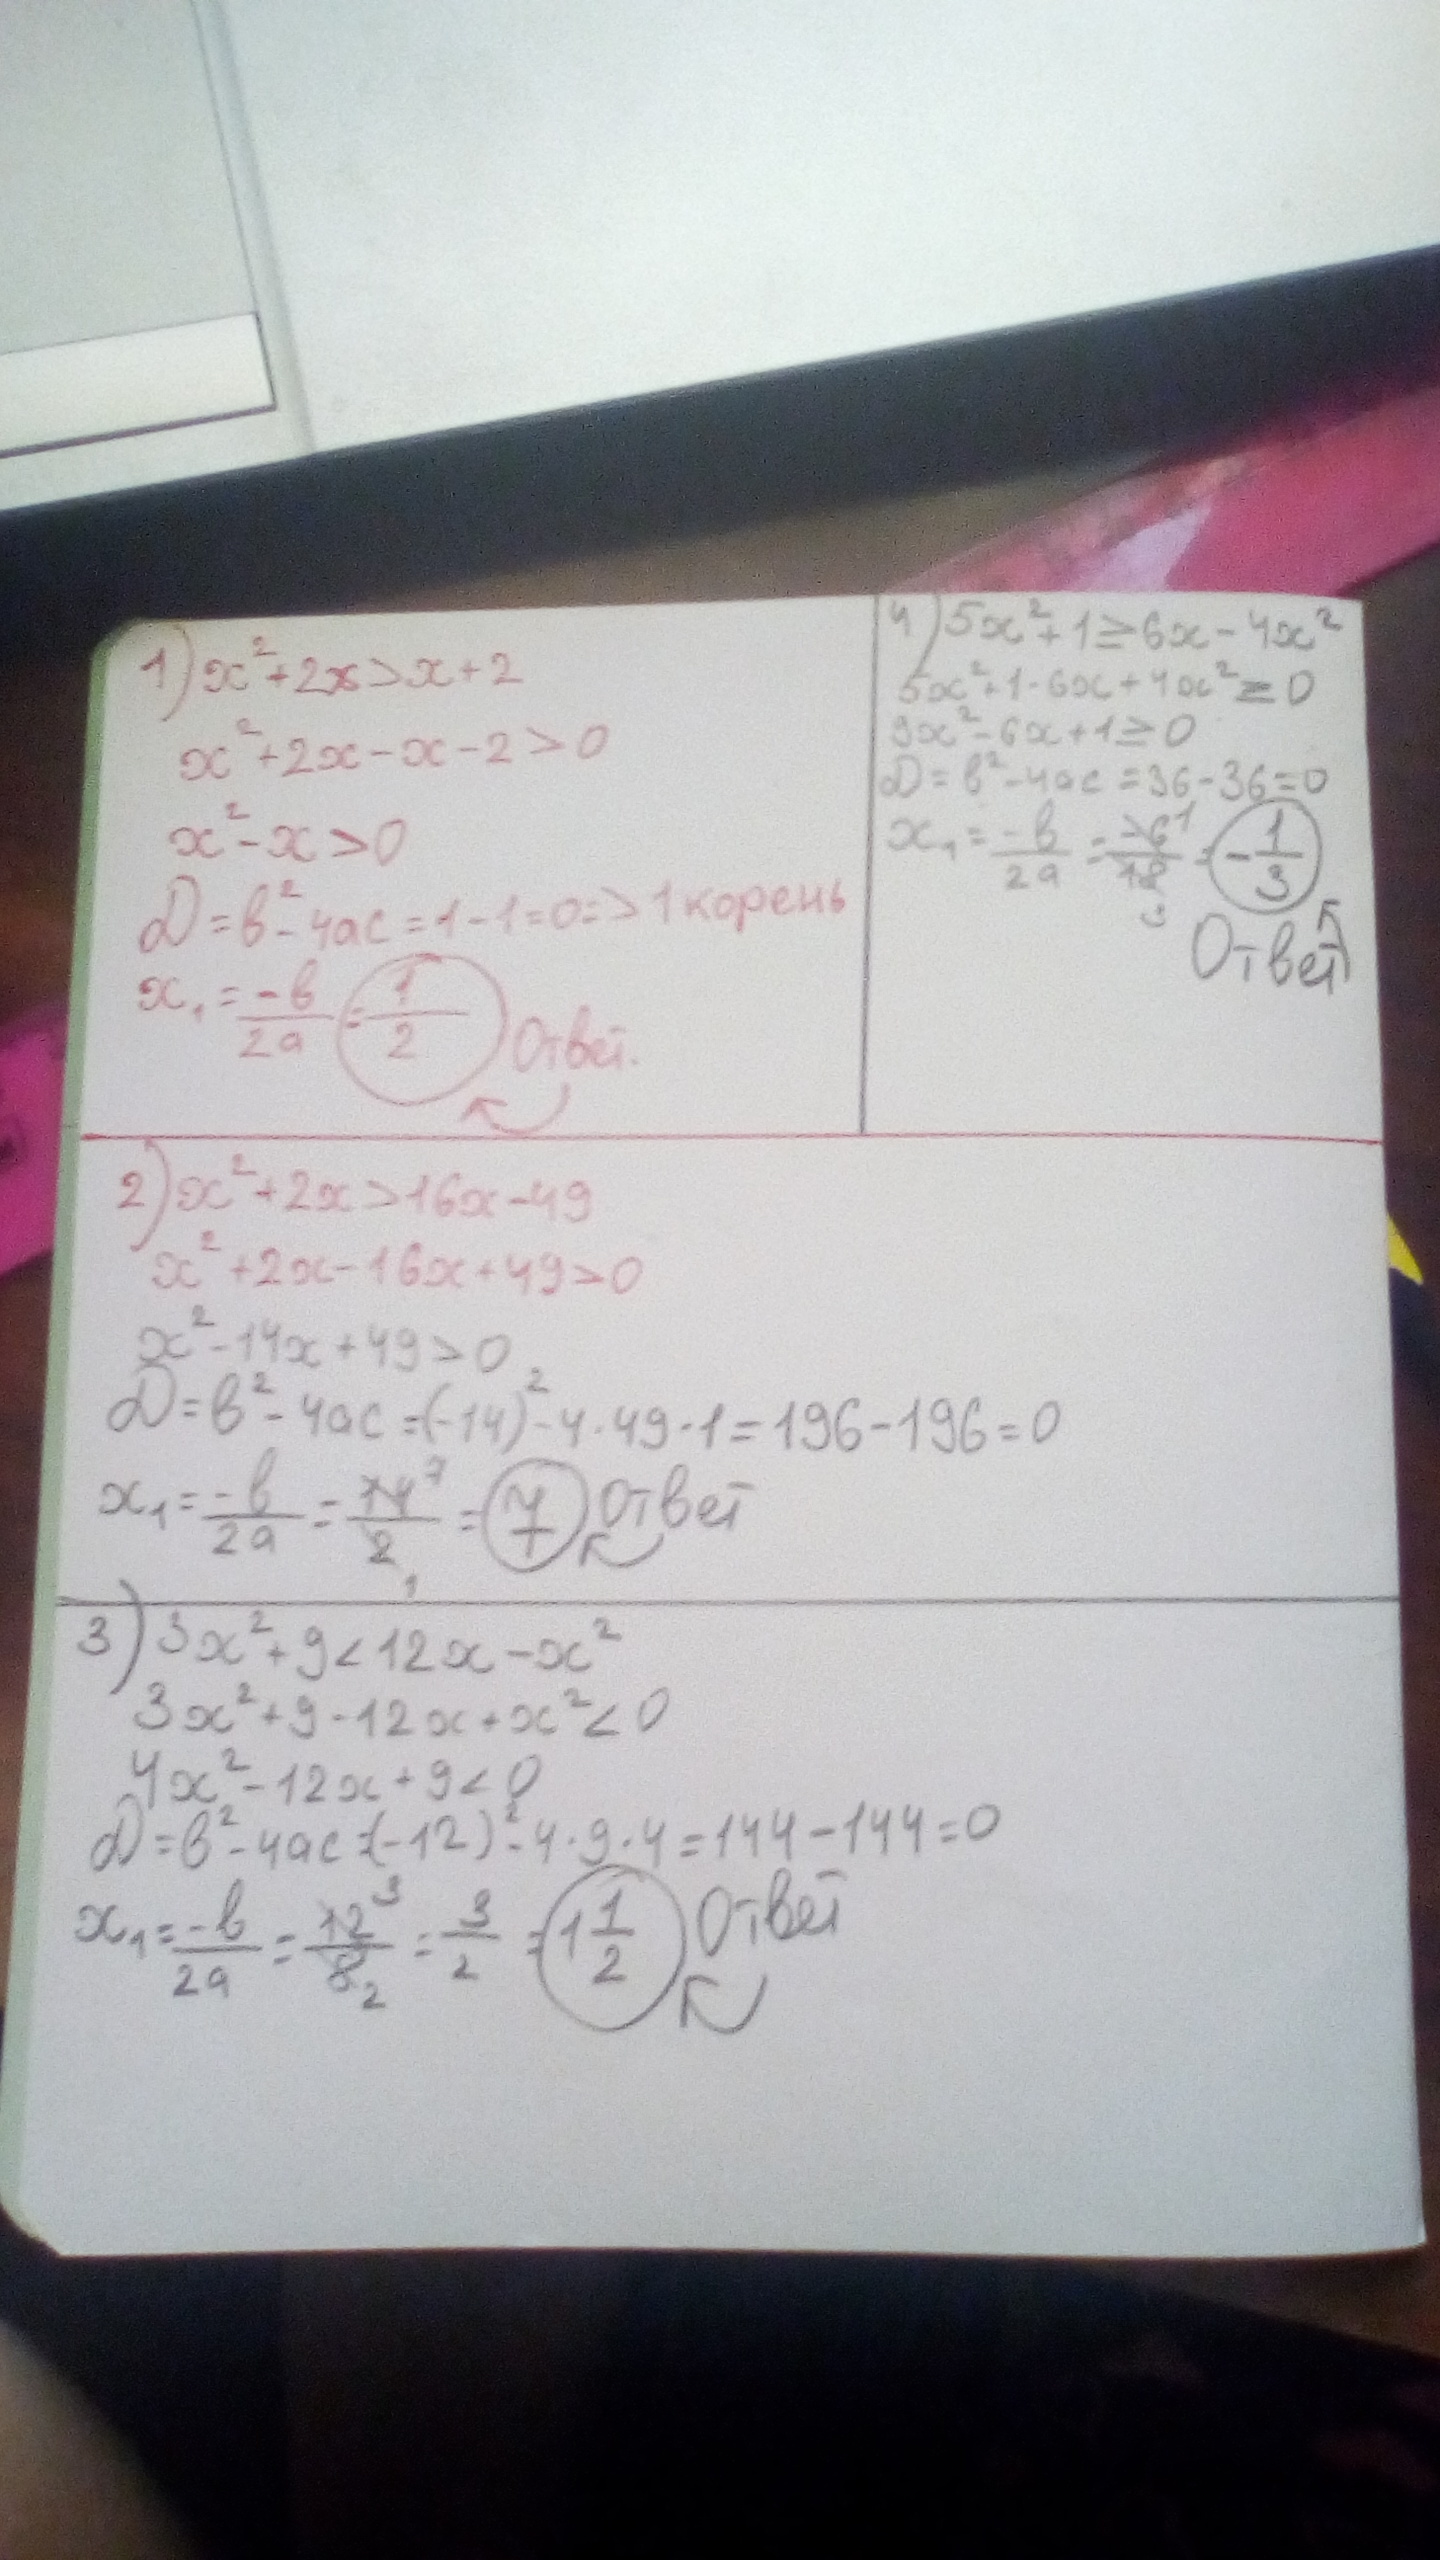 1) x²+2x>x+2
x²+2x-x-2>0
x²-x>0
D=b²-4ac=1-1=0=>1 корень
x₁=-b/2a=1/2 Ответ.
4) 5x²+1≥6x-4x²
5x²+1-6x+4x²≥0
9x²-6x+1≥0
D=b²-4ac=36-36=0
x₁=-b/2a=-6/18=-1/3
Ответ
2) x²+2x>16x-49
x²+2x-16x+49>0
x²-14x+49>0
D=b²-4ac=(-14)²-4·49·1=196-196=0
x₁=-b/2a=14/2=7 Ответ
3) 3x²+9<12x-x²
3x²+9-12x+x²<0
4x²-12x+9<0
D=b²-4ac=(-12)²-4·9·4=144-144=0
x₁=-b/2a=12/8=3/2=1 1/2 Ответ